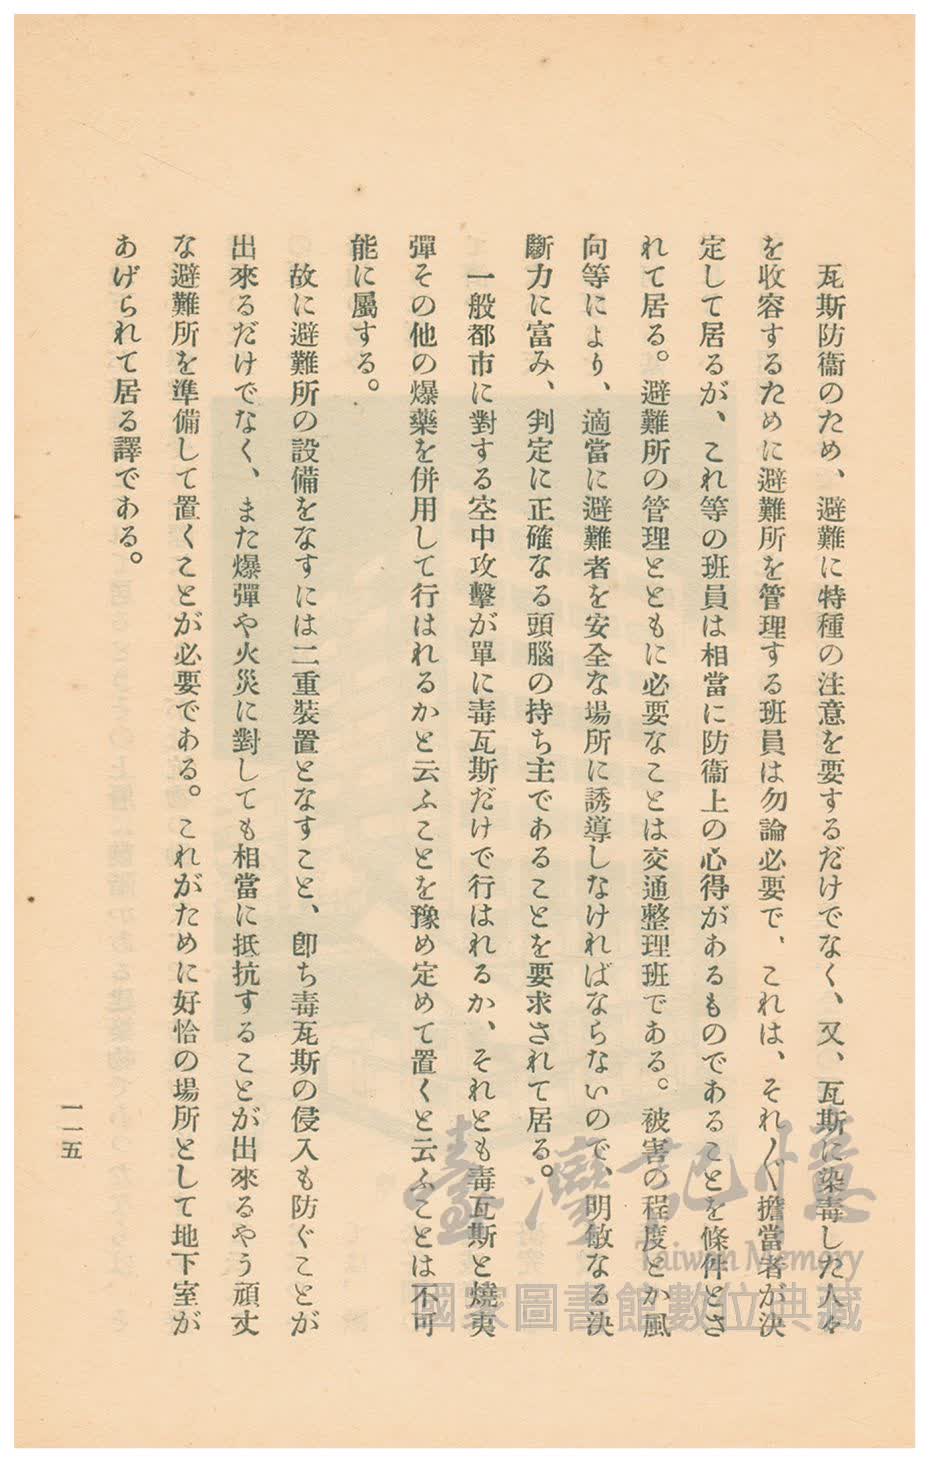 瓦斯防衞のため、避難に特種の注意を要するだけでなく、又、瓦斯に染毒した人々
を收容するために避難所を管理する班員は勿論必要で、これは、それ〴〵擔當者が決
定して居るが、これ等の班員は相當に防衞上の心得があるものであることを條件とさ
れて居る。避難所の管理とともに必要なことは交通整理班である。被害の程度とか風
向等により、適當に避難者を安全な場所に誘導しなければならないので、明敏なる決
斷力に富み、判定に正確なる頭腦の持ち主であることを要求されて居る。
一般都市に對する空中攻擊が單に毒瓦斯だけで行はれるか、それとも毒瓦斯と燒夷
彈その他の爆藥を併用して行はれるかと云ふことを豫め定めて置くと云ふことは不可
能に屬する。
故に避難所の設備をなすには二重裝置となすこと、卽ち毒瓦斯の侵入も防ぐことが
出來るだけでなく、また爆彈や火災に對しても相當に抵抗することが出來るやう頑丈
な避難所を準備して置くことが必要である。これがために好恰の場所として地下室が
あげられて居る譯である。
一一五
臺灣記憶
Taiwan Memory
國家圖書館數位典藏